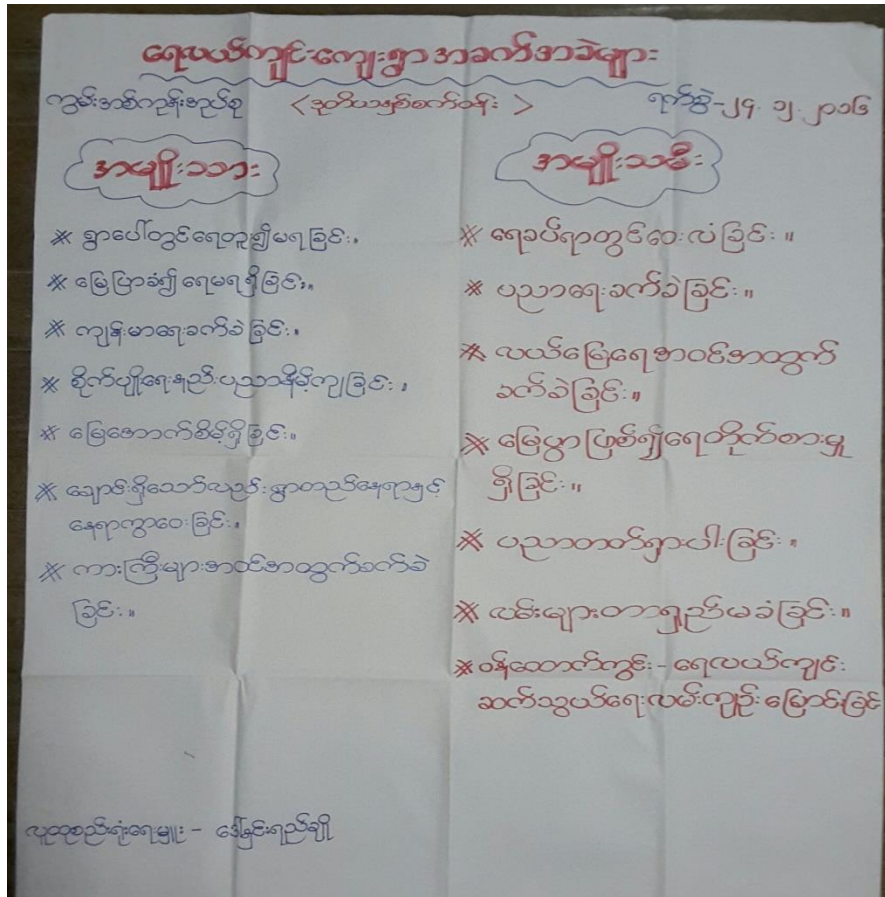 ရေလယ်ကျင်းကျေးရွာအခက်အခဲများ
ကွမ်းအစ်ကုန်းအုပ်စု <ဒုတိယနှစ်စက်ဝန်း> ရက်စွဲ-၂၄.၁၂.၂၀၁၆
အမျိုးသား
※ ရွာပေါ်တွင်ရေတူး၍မရခြင်း။
※ မြေပြာခံ၍ရေမရရှိခြင်း။
※ ကျန်းမာရေးခက်ခဲခြင်း။
※ စိုက်ပျိုးရေးနည်းပညာနိမ့်ကျခြင်း။
※ မြေအောက်စိမ့်ရှိခြင်း။
※ ချောင်းရှိသော်လည်းရွာတည်နေရာနှင့်
နေရာကွာဝေးခြင်း။
※ ကားကြီးများအဝင်အထွက်ခက်ခဲ
ခြင်း။
အမျိုးသမီး
※ ရေခပ်ရာတွင်ဝေးလံခြင်း။
※ ပညာရေးခက်ခဲခြင်း။
※ လယ်မြေရေအဝင်အထွက်
ခက်ခဲခြင်း။
※ မြေပွာဖြစ်၍ရေတိုက်စားမှု
ရှိခြင်း။
※ ပညာတတ်ရှားပါးခြင်း။
※ လမ်းများတာရှည်မခံခြင်း။
※ ဝန်ထောက်ကွင်း - ရေလယ်ကျင်း
ဆက်သွယ်ရေးလမ်းကျဉ်းမြောင်းခြင်း
လူထုစည်းရုံးရေးမှူး - ဒေါ်နှင်းရည်ချို